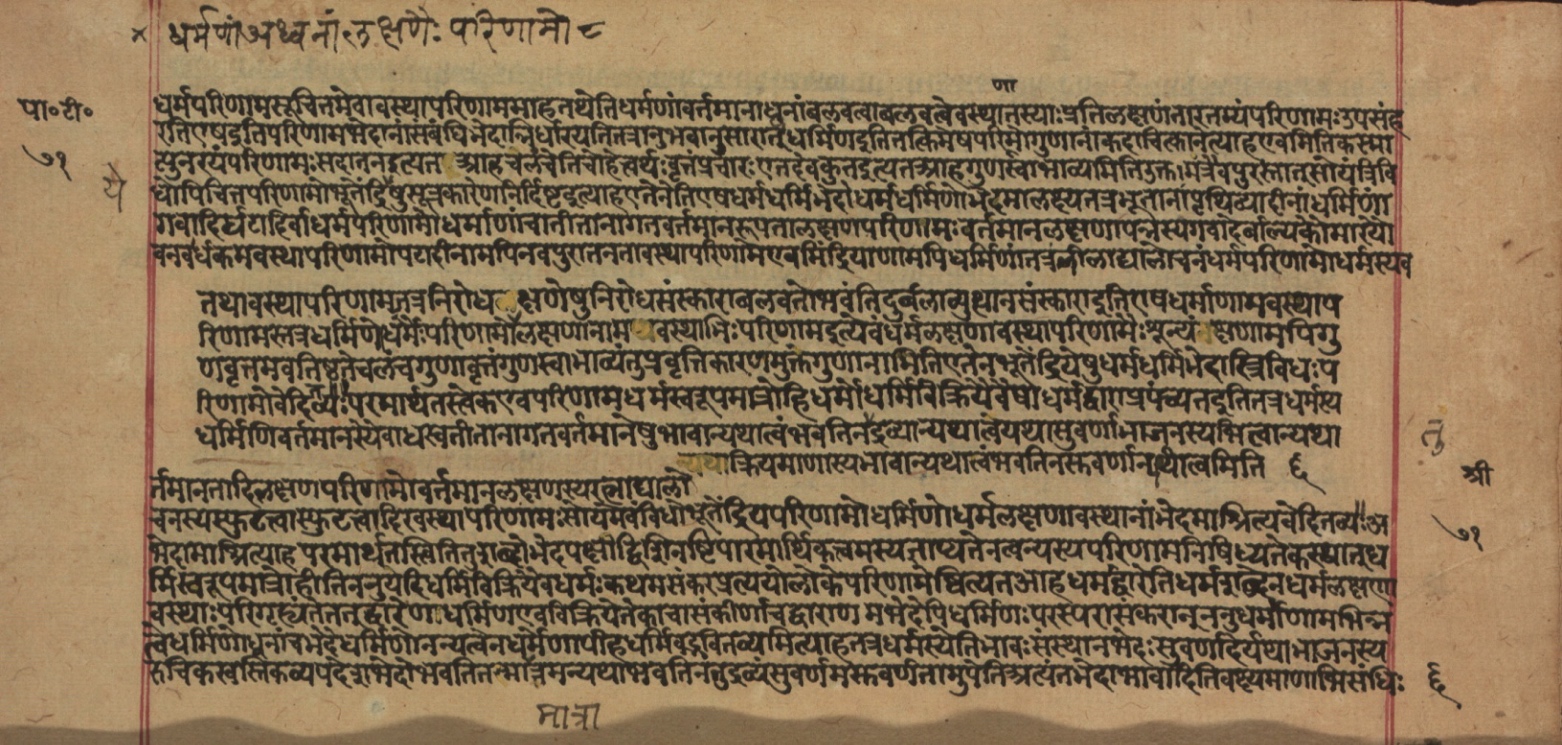 × धर्मणां अध्वनां लक्षणैः परिणामो ८
णा
पा॰टी॰
७१
धर्मपरिणामसूचितमेवावस्थापरिणाममाहतथेतिधर्मणांवर्त्तमानाध्वनांबलवत्वाबलवत्वेवस्थातस्याःप्रतिलक्षणंतारतम्यंपरिणामःउपसंह
रतिएषइतिपरिणामभेदानांसंबंधिभेदान्निर्धारयतितत्रानुभवानुसारात्धर्मिणइतितत्किमेषपरिमोगुणानांकदाचित्कोनेत्याहएवमितिकस्मा
त्पुनरयंपरिणामःसदातनइत्यत आहचलंचेतिचोहित्वर्थःवृत्तंप्रचारःएतदेवकुतइत्यतआहगुणस्वाभाव्यमितिउक्तमत्रैवपुरस्तात्सोयंत्रिवि
यै
धोपिचित्तपरिणामोभूतेंद्रियेषुसूत्रकारेणनिर्दिष्टइत्याहएतेनेतिएषधर्मधर्मिभेदोधर्मधर्मिणोर्भेदमालक्ष्यतत्रभूतानांपृथिव्यादीनांधर्मिणां
गवादिर्घटादिर्वाधर्मपरिणामोधर्माणांचातीतानागतवर्तमानरूपतालक्षणपरिणामःवर्तमानलक्षणापन्नस्यगवादेर्बाल्यकौमारयौ
वनवार्धकमवस्थापरिणामोघटादीनामपिनवपुरातनतावस्थापरिणामएवमिंद्रियाणामपिधर्मिणांतत्रनीलाद्यालोचनंधर्मपरिणामोधर्मस्यव
तथावस्थापरिणामतत्रनिरोधलक्षणेषुनिरोधसंस्काराबलवंतोभवंतिदुर्बलाव्युत्थानसंस्काराइतिएषधर्माणामवस्थाप
रिणामस्तत्रधर्मिणोधर्मैःपरिणामोलक्षणानामप्यवस्थाभिःपरिणामइत्येवंधर्मलक्षणावस्थापरिणामैःशून्यंनक्षणमपिगु
णवृत्तमवतिष्ठतेचलंचगुणवृत्तंगुणस्वाभाव्यंतुप्रवृत्तिकारणमुक्तंगुणानामितिएतेनभूतेंद्रियेषुधर्मधर्मिभेदात्त्रिविधःप
रिणामोवेदितव्यःपरमार्थतस्त्वेकएवपरिणामधर्मस्वरूपमात्रोहिधर्मोधर्मिविक्रियैवैषाधर्मद्वाराप्रपंच्यतइतितत्रधर्मस्य
धर्मिणिवर्तमानस्यैवाध्वस्वतीतानागतवर्तमानेषुभावान्यथात्वंभवतिनद्रव्यान्यथात्वंयथासुवर्णभाजनस्यभित्वान्यथा
तु
न्यथाक्रियमाणस्यभावान्यथात्वंभवतिनसुवर्णान्यथात्वमिति ६
श्री
र्तमानतादिलक्षणपरिणामोवर्तमानलक्षणस्यरत्नाद्यालो
चनस्यस्फुटत्वास्फुटत्वादिरवस्थापरिणामःसोयमेवंविधोभूतेंद्रियपरिणामोधर्मिणोधर्मलक्षणावस्थानांभेदमाश्रित्यवेदितव्यःअ
७१
भेदामाश्रित्याहपरमार्थतस्त्वितितुशब्दोभेदपक्षाद्विशिनष्टिपारमार्थिकत्वमस्यज्ञाप्यतेनत्वन्यस्यपरिणामनिषिध्यतेकस्मात्ध
र्मिस्वरूपमात्रोहीतिननुयदिधर्मिविक्रियैवधर्मःकथमसंकरप्रत्ययोलोकेपरिणामेष्वित्यतआहधर्मद्वारेतिधर्मशब्देनधर्मलक्षणा
वस्थाःपरिगृह्यंतेतत्द्वारेणधर्मिणएवविक्रियेत्येकाचासंकीर्णाचद्वाराणामभेदेपिधर्मिणःपरस्परासंकरात्ननुधर्माणामभिन्न
त्वेधर्मिणोध्वनांचभेदेधर्मिणोनन्यत्वेनधर्मेणापीहधर्मिवद्भवितव्यमित्याहतत्रधर्मस्येतिभावःसंस्थानभेदःसुवर्णादेर्यथाभाजनस्य
रुचकस्वस्तिकव्यपदेशभेदोभवतितन्मात्रमन्यथाभवतिनतुद्रव्यंसुवर्णमसुवर्णतामुपैतिअत्यंतभेदाभावादितिवक्ष्यमाणाभिसंधिः ६
मात्रा